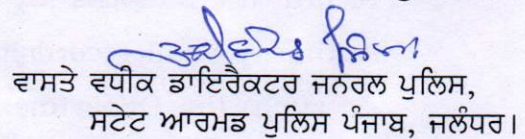 ਵਾਸਤੇ ਵਧੀਕ ਡਾਇਰੈਕਟਰ ਜਨਰਲ ਪੁਲਿਸ,
ਸਟੇਟ ਆਰਮਡ ਪੁਲਿਸ ਪੰਜਾਬ, ਜਲੰਧਰ।